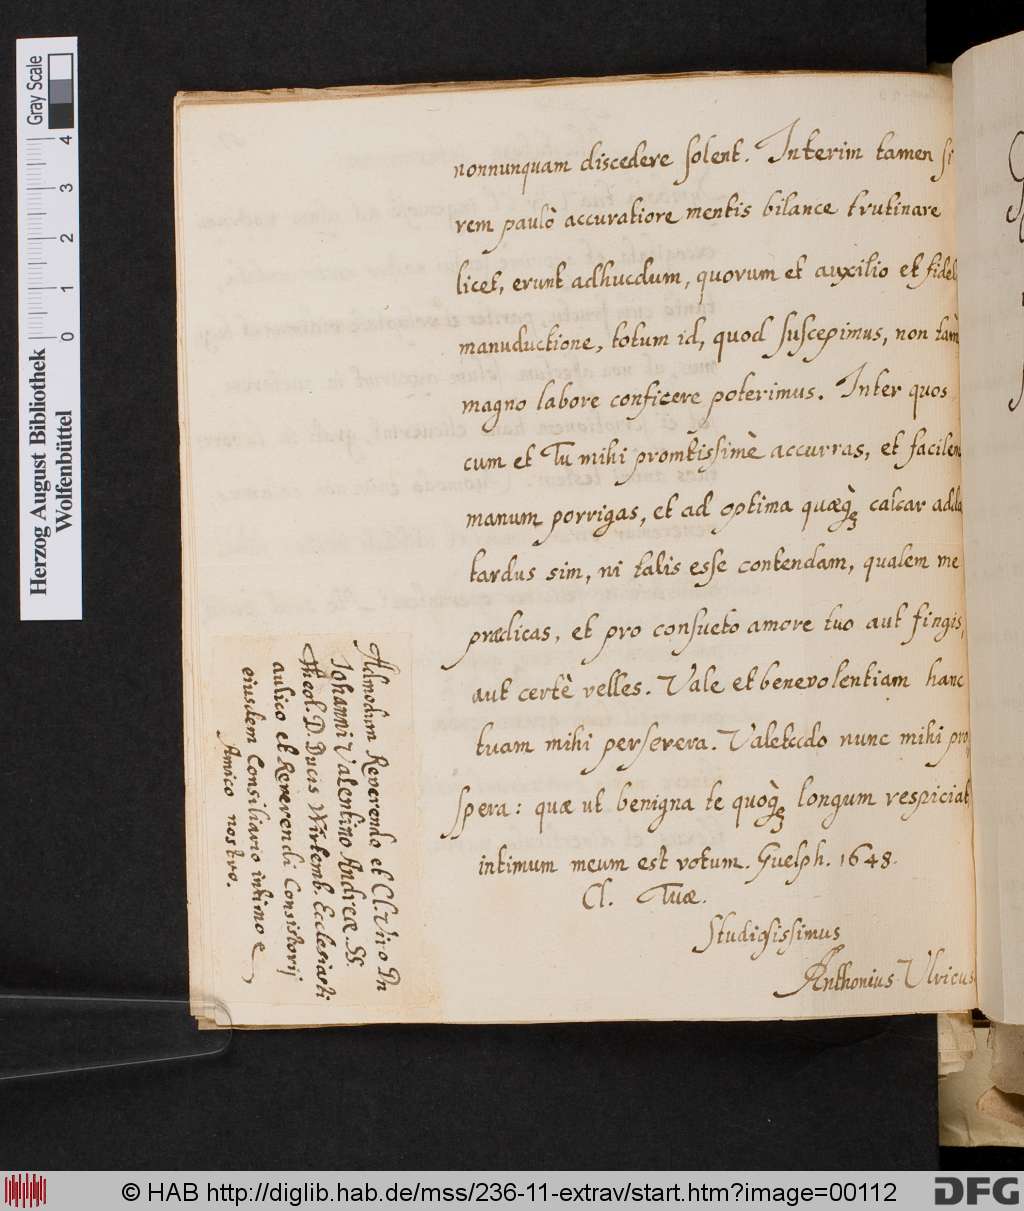 nonnunquam discedere solent. Interim tamen si
rem paulò accuratiore mentis bilance trutinare
licet, erunt adhucdum, quorum et auxilio et fidel
manuductione, totum id, quod suscepimus, non tam
magno labore conficere poterimus. Inter quos
cum et Tu mihi promtissimè accurras, et facilem
manum porrigas, et ad optima quæq; calcar adda
tardus sim, ni talis esse contendam, qualem me
prædicas, et pro consueto amore tuo aut fingis,
aut certè velles. Vale et benevolentiam hanc
tuam mihi persevera. Valetudo nunc mihi pro
spera: quæ ut benigna te quoq; longum respiciat
intimum meum est votum. Guelph. 1648.
Cl. Tuæ.
Studiosissimus
Anthonius Ulricus
Admodum Reverendo et Cl. Viro Dn
Iohanni Valentino Andreæ SS.
Theol. D. Ducis Wirtemb. Ecclesiasti
aulico et Reverendi Consistorij
eiusdem Consiliario intimo e
Amico nostro.
Herzog August Bibliothek
Wolfenbüttel
Gray Scale
0 1 2 3 4
© HAB http://diglib.hab.de/mss/236-11-extrav/start.htm?image=00112
DFG